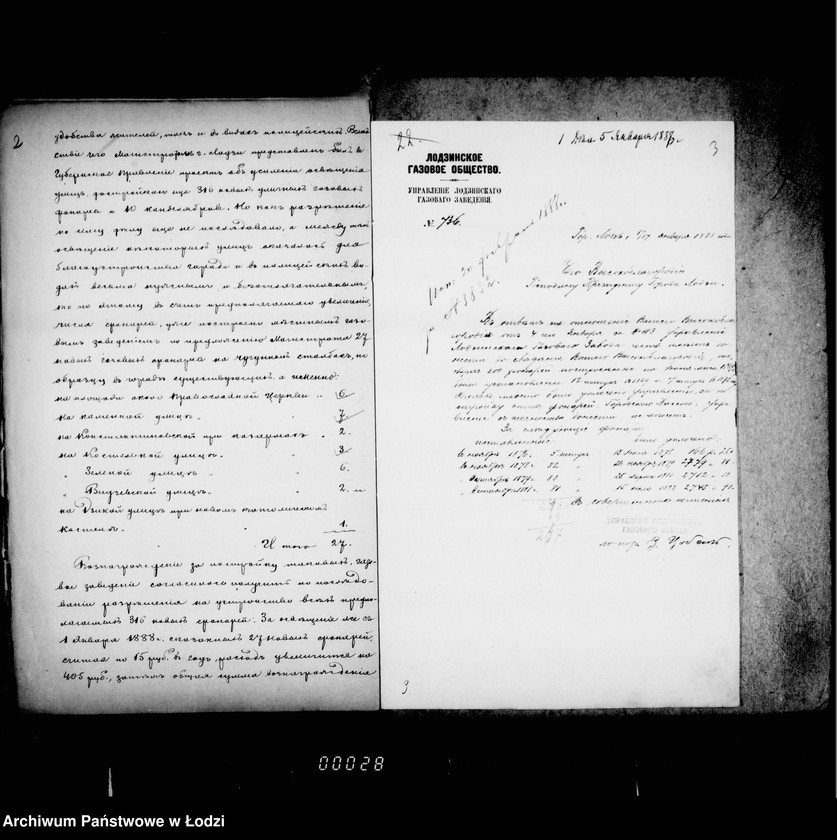 2
удобства жителей, такъ и въ видахъ полицейскихъ. Вслѣд
ствіе чего Магистратомъ г. Лодзи представленъ былъ въ
Губернское Правленіе проектъ объ усиленіи освѣщенія
улицъ, постройкою еще 316 новыхъ уличныхъ газовыхъ
фонарей и 10 канделябровъ. Но какъ разрѣшеніе
по сему дѣлу еще не послѣдовало, а между тѣмъ
освѣщеніе нѣкоторыхъ улицъ оказалось для
благоустройства города и въ полицейскомъ ви-
дахъ весьма нужнымъ и безотлагательнымъ,
но по этому въ счетъ предполагаемаго увеличенія
числа фонарей, уже построено мѣстнымъ газо-
вымъ заведеніемъ по предложенію Магистрата 27
новыхъ газовыхъ фонарей на чугунныхъ столбахъ, по
образцу въ городѣ существующихъ, а именно:
на площади около Православной Церкви . . 6
на Каменной улицѣ . 7
на Константиновской при казармахъ . 2.
на Костельной улицѣ . 3
" Зеленой улицѣ " 6.
" Видзевской улицѣ . 2. "
на Дзикой улицѣ при новомъ католическомъ
костелѣ . 1.
Итого 27.
Вознагражденіе за постройку таковыхъ, газо-
вое заведеніе согласилось получить по послѣдо-
ваніи разрѣшенія на устройство всѣхъ предпо-
лагаемыхъ 316 новыхъ фонарей. За освѣщеніе же съ
1 Января 1888 г. сказанныхъ 27 новыхъ фонарей,
считая по 15 руб. въ годъ, расходъ увеличится на
405 руб., затѣмъ общая сумма вознагражденія
22.
5 Января 188
3
ЛОДЗИНСКОЕ
ГАЗОВОЕ ОБЩЕСТВО.
УПРАВЛЕНІЕ ЛОДЗИНСКАГО
ГАЗОВАГО ЗАВЕДЕНІЯ.
№ 736.
20 февраля 1888 г.
№ 3882.
Гор. Лодзь, 17 января 1888 года
Его Высокоблагородію
Господину Президенту Города Лодзи.
Въ отвѣтъ на отношеніе Вашего Высокобла
городія отъ 4 Января за № 113 Управленіе
Лодзинскаго Газоваго Завода честь имѣетъ до
нести до свѣдѣнія Вашего Высокоблагородія,
фонарей.
За слѣдующіе фонари
поставленные: было уплочено:
въ ноябрѣ 1878 г. 5 штукъ
въ ноябрѣ 1878 г. 82 " 26 ноября 1879 2779 "
Октябрѣ 1879 г. 80 "
Сентябрѣ 1881 г. 81 " 2745 "
УПРАВЛЕНІЕ
ГАЗОВАГО
3.
00028
Archiwum Państwowe w Łodzi